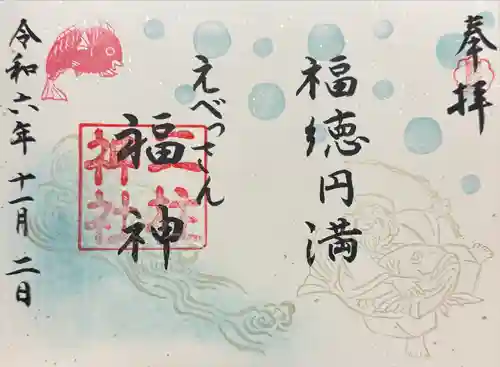 奉拝
福徳円満
えべっさん
福神
三柱
神社
令和六年十一月二日